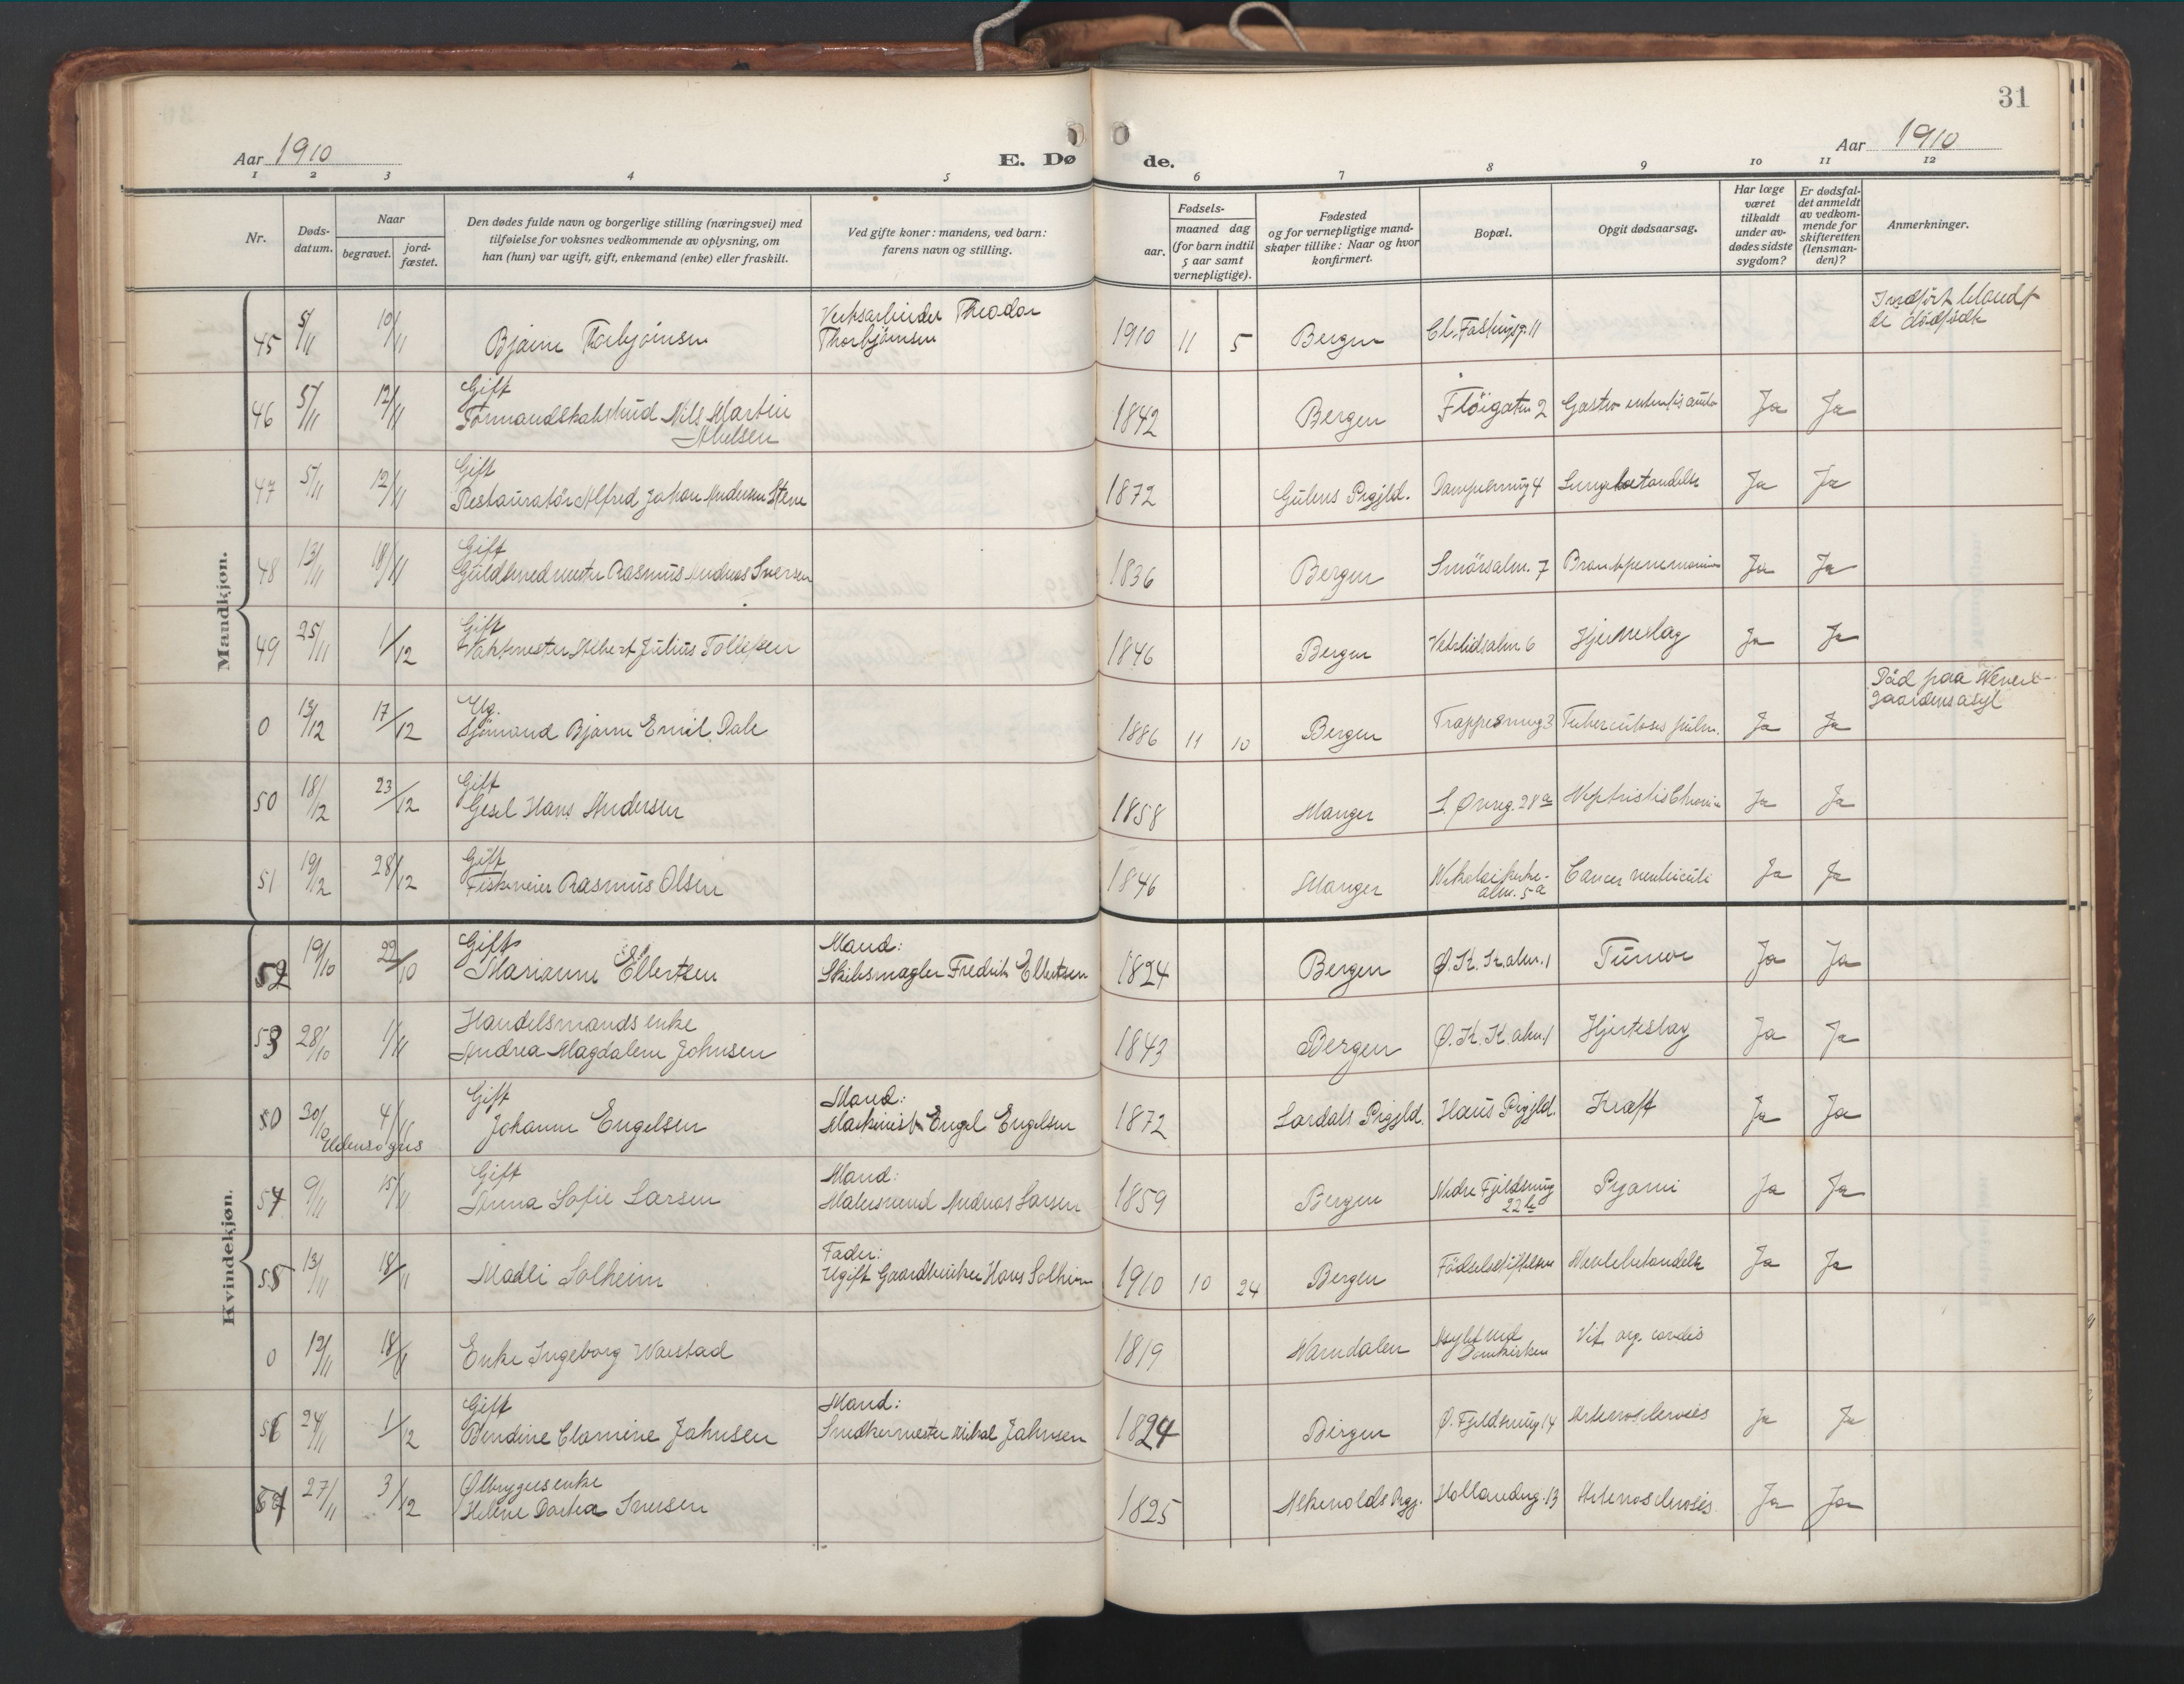 31
Aar 1910
E. Dø
de.
Aar 1910
1 2 3 4 5 6 7 8 9 10 11 12
Nr.
Døds-
datum.
Naar
begravet.
jord-
fæstet.
Den dødes fulde navn og borgerlige stilling (næringsvei) med
tilføielse for voksnes vedkommende av oplysning, om
han (hun) var ugift, gift, enkemand (enke) eller fraskilt.
Ved gifte koner: mandens, ved barn:
farens navn og stilling.
Fødsels-
aar.
maaned dag
(for barn indtil
5 aar samt
vernepligtige).
Fødested
og for vernepligtige mand-
skaper tillike: Naar og hvor
konfirmert.
Bopæl.
Opgit dødsaarsag.
Har læge
været
tilkaldt
under av-
dødes sidste
sygdom?
Er dødsfal-
det anmeldt
av vedkom-
mende for
skifteretten
(lensman-
den)?
Anmerkninger.
Mandkjøn.
45 5/11 10/11 Bjarne Thorbjörnsen
Verksarbeider Theodor
Thorbjörnsen
1910 11 5 Bergen Cl. Fastingsg. 11
Indfört blandt
de dödfödte
46 5/11 12/11 Gift
Formandskabsbud Nils Martin
Nielsen
1842 Bergen Flöigaten 2 Ja Ja
47 5/11 12/11 Gift
Restauratör Alfred Johan Andersen Stene
1872 Gulens Prgjld. Dampesmug 4 Lungebetændelse Ja Ja
48 13/11 18/11 Gift
Guldsmedmester Rasmus Andreas Iversen
1836 Bergen Smörsalm. 7 Bronkpenemonium Ja Ja
49 25/11 1/12 Gift
Vaktmester Albert Julius Tollefsen
1846 Bergen Vetrlidsalm 6 Hjerneslag Ja Ja
0 13/12 17/12 Ug.
Sjömand Bjarne Emil Dale
1886 11 10 Bergen Trappesmug 3 Tuberculoses pulm. Ja Ja
Död paa
gaardens asyl
50 18/12 23/12 Gift
Gesel Hans Andersen
1858 Manger S. Øvreg. 28a Ja Ja
51 19/12 28/12 Gift
Fiskeveier Rasmus Olsen
1846 Manger Nikolaikirke-
alm. 5a
Cancer ventriculi Ja Ja
Kvindekjøn.
52 19/10 22/10 Gift
Marianne Ellertsen
Mand:
Skibsmagler Fredrik Ellertsen
1824 Bergen Ø. K. K. alm. 1 Tumor Ja Ja
53 28/10 1/11 Handelsmands enke
Andrea Magdalene Johnsen
1843 Bergen Ø. K. K. alm. 1 Hjerteslag Ja Ja
50 30/10 4/11 Gift
Johanne Engelsen
Udensognes
Mand:
Maskinist Engel Engelsen
1872 Lardals Prgjld. Haus Prgjld. Kræft Ja Ja
54 9/11 15/11 Gift
Anna Sofie Larsen
Mand:
Malersvend Andreas Larsen
1859 Bergen Nedre Fjeldsmug
22b
Pyæmi Ja Ja
55 13/11 18/11 Madli Solheim
Fader:
Ugift Gaardbruker Hans Solheim
1910 10 24 Bergen Födselsstiftelsen Navlebetændelse Ja Ja
0 12/11 18/11 Enke Ingeborg Warstad
1819 Namdalen Asylet ved
Domkirken
Vit. org. cordis
56 24/11 1/12 Gift
Bendine Clamine Jahnsen
Mand:
Snedkermester Mikal Jahnsen
1824 Bergen Ø. Fjeldsmug 14 Arterosclerosis Ja Ja
57 27/11 3/12 Ølbryggers enke
Helene Dorthea Iversen
1825 Askevolds Prgj. Hollanderg. 13 Arterosclerosis Ja Ja